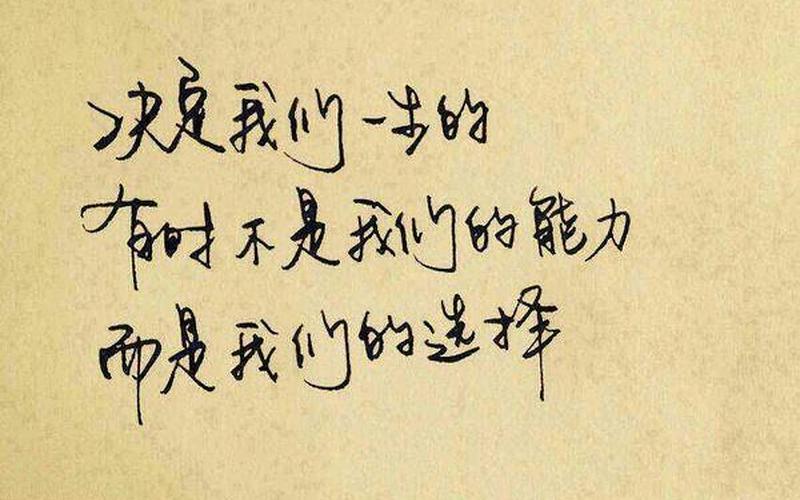 决定我们一步的
有时不是我们的能力
而是我们的选择